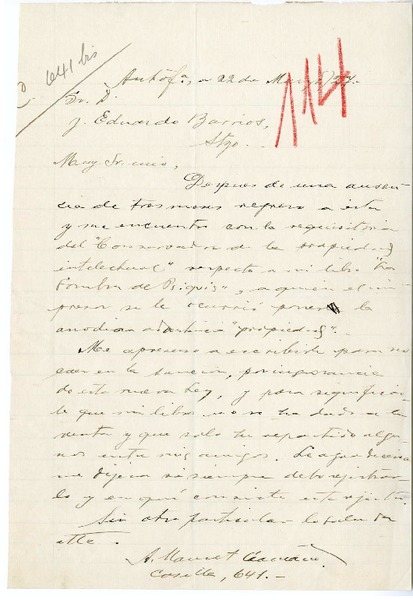 641 bis
114
Antof., a 22 de
Sr. D.
J. Eduardo Barrios,
Stgo.
Muy Sr. mio,
Despues de una ausen
cia de tres meses regreso a ésta
y me encuentro con la requisitoria
del "Conservador de la propiedad
intelectual" respecto a mi libro "La
Sombra de Psiquis", a quien el im
presor se le ocurrió ponerle la
anodina advertencia "propiedad".
Me apresuro a escribirle para no
caer en la sanción, por ignorancia
de esta nueva ley, y para significar
le que mi libro no se ha dado a la
venta y que solo he repartido algu
nos entre mis amigos. Le agradeceria
me dijera si siempre debo rejistrar
lo y en qué consiste este rejistro.
Sin otro particular lo saluda
atte.
A. Mauret
Casilla, 641.-